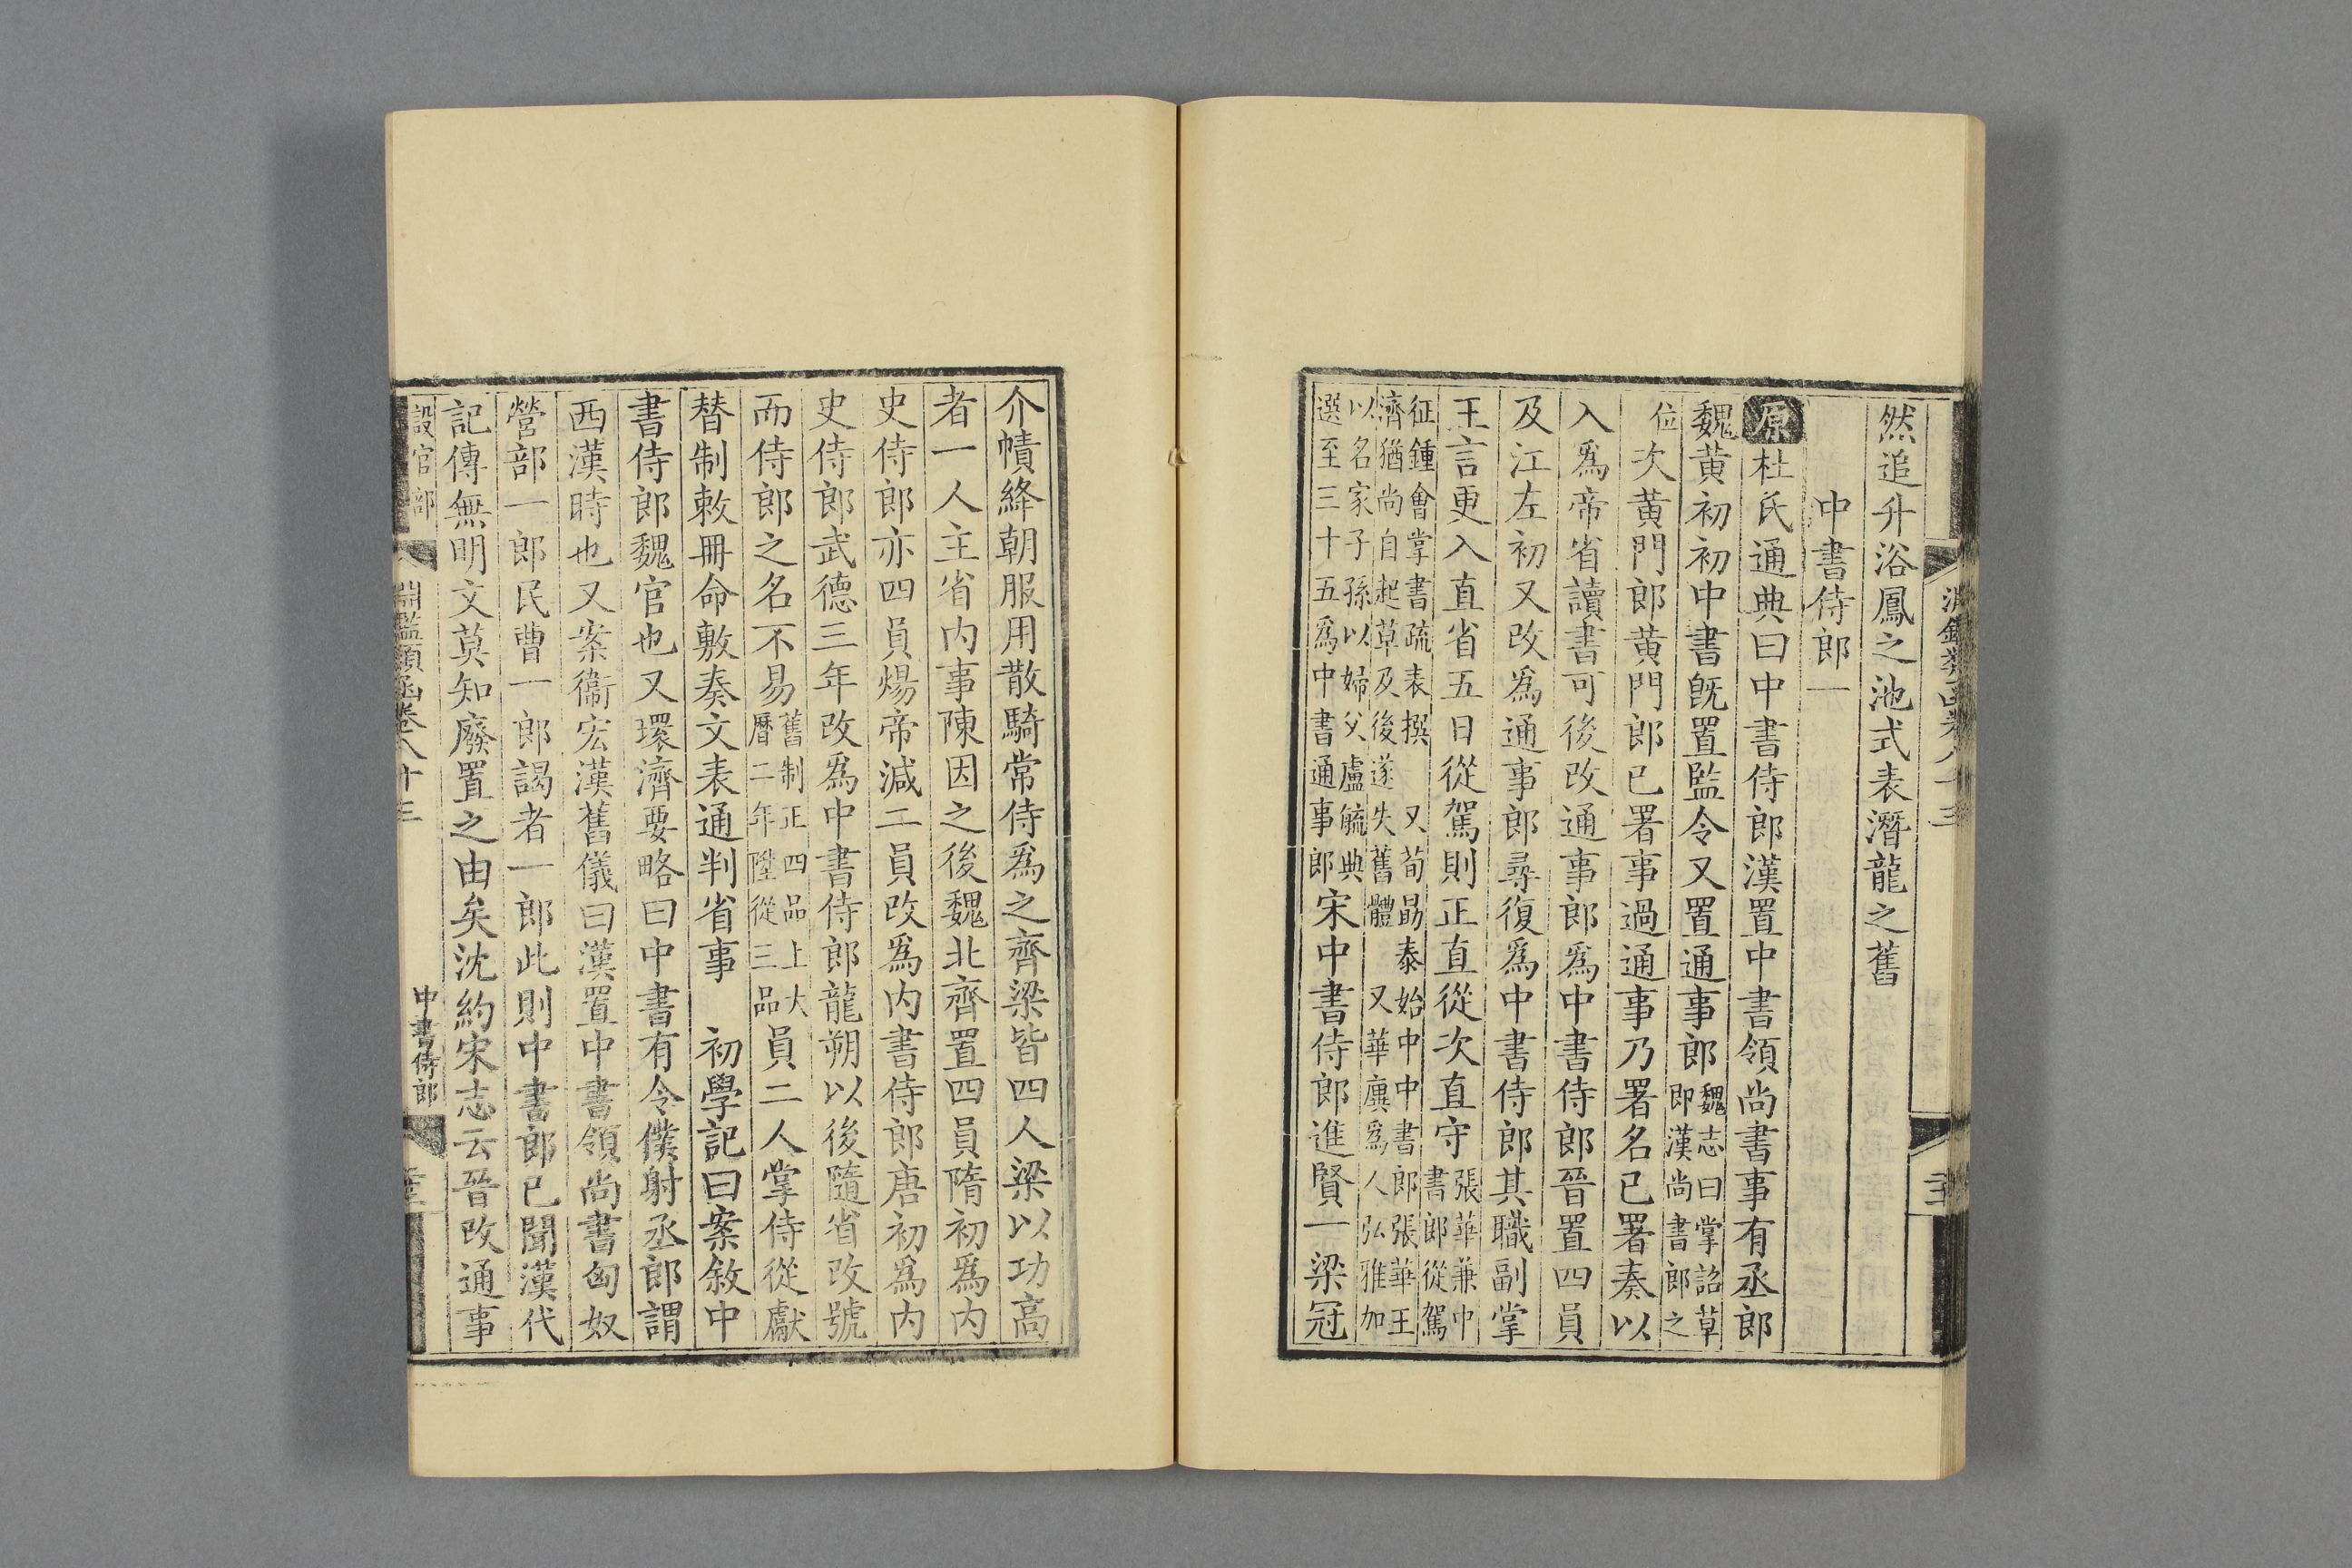 然追升浴鳳之池式表潛龍之舊
中書侍郎一
原杜氏通典曰中書侍郎漢置中書領尚書事有丞郎
魏黄初初中書旣置監令又置通事郎魏志曰掌詔草即漢尚書郎之
位次黄門郎黄門郎已署事過通事乃署名已署奏以
入爲帝省讀書可後改通事郎爲中書侍郎晉置四員
及江左初又改爲通事郎尋復爲中書侍郎其職副掌
王言更入直省五日從駕則正直從次直守張華兼中書郎從駕
征鍾會掌書疏表撰 又荀勗泰始中中書郎張華王
濟猶尚自起草及後遂失舊體 又華廙爲人弘雅加
以名家子孫以婦父盧毓典
選至三十五爲中書通事郎宋中書侍郎進賢一梁冠
介幘絳朝服用散騎常侍爲之齊梁皆四人梁以功高
者一人主省内事陳因之後魏北齊置四員隋初爲内
史侍郎亦四員煬帝減二員改爲内書侍郎唐初爲内
史侍郎武德三年改爲中書侍郎龍朔以後隨省改號
而侍郎之名不易舊制正四品上大曆二年陞從三品員二人掌侍從獻
替制敕冊命敷奏文表通判省事 初學記曰案敘中
書侍郎魏官也又環濟要略曰中書有令僕射丞郎謂
西漢時也又案衞宏漢舊儀曰漢置中書領尚書匈奴
營部一郎民曹一郎謁者一郎此則中書郎已聞漢代
記傳無明文莫知廢置之由矣沈約宋志云晉改通事
設官部 淵鑑類函卷八十三 中書侍郎